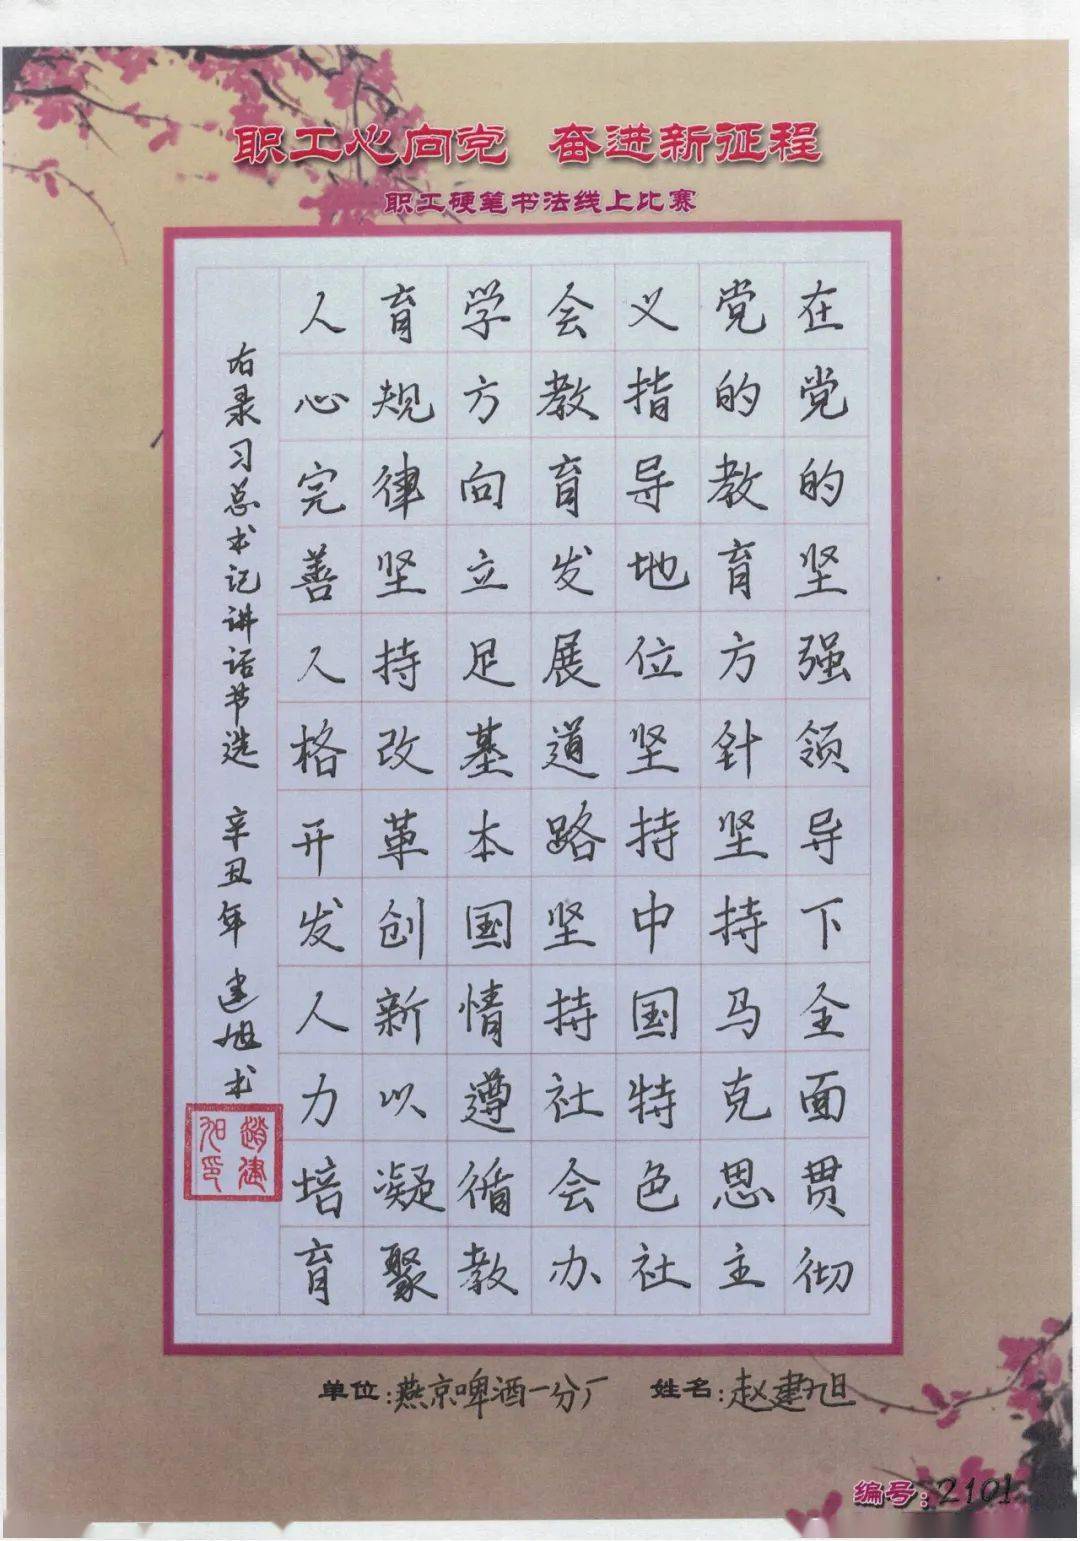 职工心向党 奋进新征程
职工硬笔书法线上比赛
在党的坚强领导下全面贯彻
党的教育方针坚持马克思主
义指导地位坚持中国特色社
会教育发展道路坚持社会办
学方向立足基本国情遵循教
育规律坚持改革创新以凝聚
人心完善人格开发人力培育
右录习总书记讲话节选 辛丑年 建旭书
赵建旭印
单位:燕京啤酒一分厂 姓名:赵建旭
编号:2101